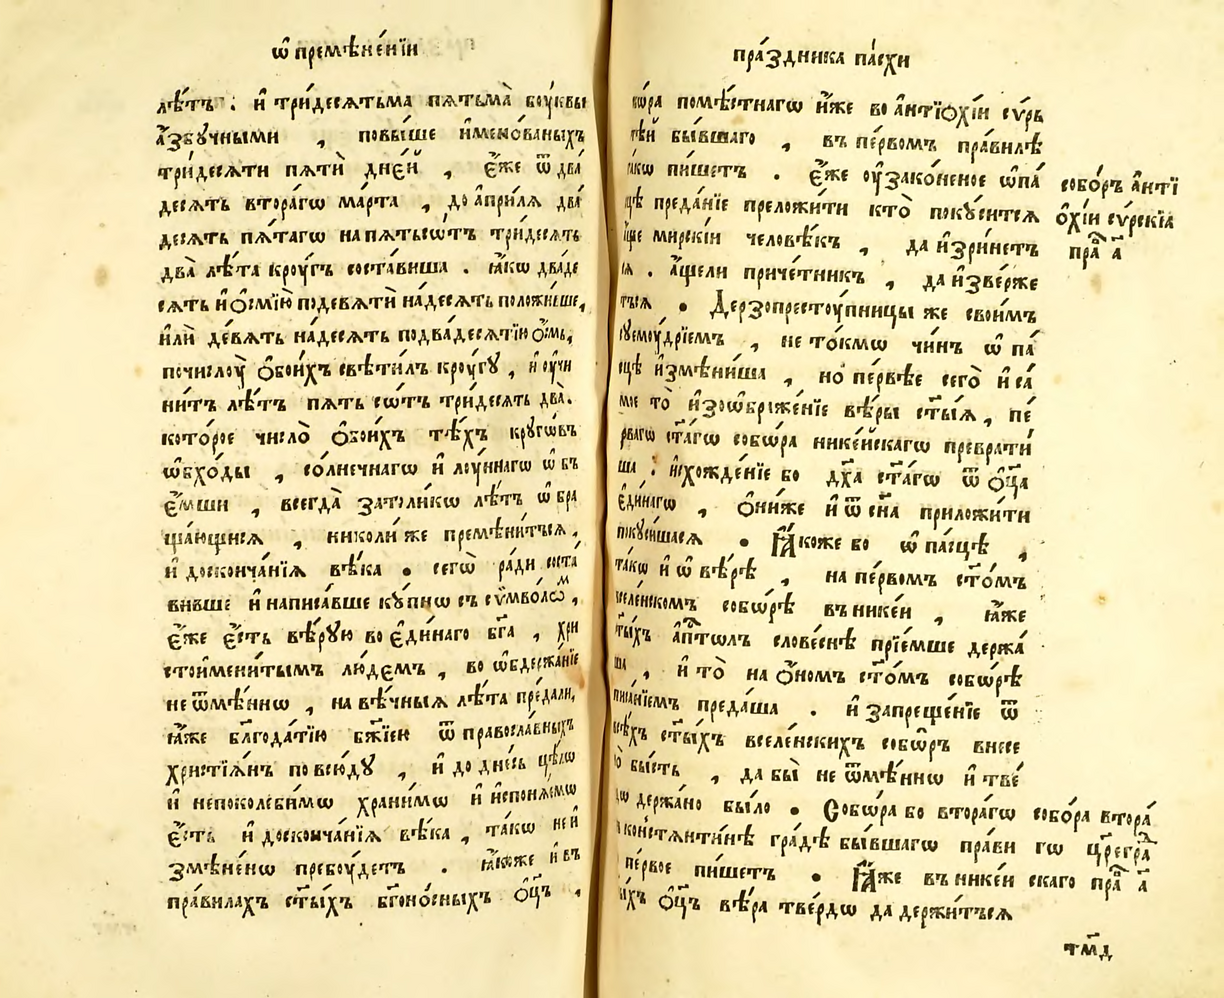 ѡ҆ премѣне́нїи
лѣ́тъ . и҆ три́десѧтьма пѧтьма̀ боу́квы
а҆́збꙋ́чными , повы́ше и҆мено́ваныхъ
три́десѧти пѧтѝ дне́й , є҆́же ѿ два́
десѧть втора́гѡ ма́рта , до а҆прі́лѧ два́
десѧть пѧ́тагѡ на пѧ́тьсѡтъ три́десѧть
два̀ лѣ́та кроу́гъ соста́виша . ꙗ҆́кѡ два́де
сѧть и҆ ѻ҆́смїю подевѧтѝ на́десѧть положи́вше,
и҆лѝ де́вѧть на́десѧть подва́десѧтїю ѻ҆́смь,
почислоу̀ ѻ҆бои́хъ свѣти́лъ кроу́гꙋ , и҆ оу҆чи
ни́тъ лѣ́тъ пѧть сѡ́тъ три́десѧть два̀.
кото́рое число̀ ѻ҆бои́хъ тѣ́хъ крꙋго́въ
ѡ҆бхо́ды , со́лнечнагѡ и҆ лоу́ннагѡ ѡ҆бъ
є҆́мши , всегда̀ затоли́кѡ лѣ́тъ ѡ҆бра
ща́ющисѧ , николи́же премѣни́тъсѧ,
и҆ доскончанїѧ вѣ́ка . сегѡ̀ ра́ди соста́
вивше и҆ написа́вше кꙋ́пнѡ съ сѵ́мволоⷨ ,
є҆́же є҆́сть вѣ́рꙋю во є҆ди́наго бг҃а , хри
стои҆мени́тымъ лю́демъ , во ѡ҆бдержа́нїе
не ѿмѣ́ннѡ , на вѣ́чныѧ лѣ́та преда́ли,
ꙗ҆́же бл҃года́тїю бж҃їею ѿ правосла́вныхъ
христїѧ́нъ по всю́дꙋ , и҆ до дне́сь цѣ́лѡ
и҆ непоколеби́мѡ храни́мѡ и҆ неспонѧ́емѡ
є҆́сть и҆ доскончанїѧ вѣ́ка , та́кѡ не и҆
змѣ́ненѡ пребоу́детъ . ꙗ҆́коже и҆ въ
пра́вилахъ ст҃ы́хъ бг҃оно́сныхъ ѻ҆ц҃ъ ,
пра́здника па́схи
бѡ́ра помѣ́стнагѡ и҆́же во а҆нтїѻхі́и сѵ́рь
тѣ́й бы́вшаго , въ пе́рвомъ пра́вилѣ
та́кѡ пи́шетъ . є҆́же оу҆зако́неное ѡ҆ па́
щѣ преда́нїе преложи́ти кто̀ покꙋси́тсѧ
а҆́ще мирскі́и человѣ́къ , да и҆зри́нетъ
сѧ . а҆́щели приче́тникъ , да и҆зве́рже
тъсѧ . Дерзопрестоу́пницы же свои́мъ
сꙋемꙋ́дрїемъ , не то́кмѡ чи́нъ ѡ҆ па́
сцѣ и҆змѣни́ша , но пе́рвѣе сего̀ и҆ са́
мое то̀ и҆зоѡбраже́нїе вѣ́ры ст҃ы́ѧ , пе́
рвагѡ ст҃а́гѡ собѡ́ра нике́йскагѡ преврати́
ша . и҆схожде́нїе бо дх҃а ст҃а́гѡ ѿ ѻ҆ц҃а
є҆ди́нагѡ , ѻ҆ни́же и҆ ѿ сн҃а приложи́ти
покꙋси́шасѧ . Ꙗ҆́коже бо ѡ҆ па́сцѣ ,
та́кѡ и҆ ѡ҆ вѣ́рѣ , на пе́рвомъ ст҃о́мъ
вселе́нскомъ собѡ́рѣ въ нике́и , ꙗ҆́же
ст҃ы́хъ а҆пⷭ҇толъ слове́снѣ прїе́мше держа́
ша , и҆ то̀ на ѻ҆́номъ ст҃о́мъ собѡ́рѣ
писа́нїемъ преда́ша . и҆ запреще́нїе ѿ
всѣ́хъ ст҃ы́хъ вселе́нскихъ собѡ́ръ внесе
но̀ бы́сть , да бы̀ не ѿмѣ́ннѡ и҆ тве́
рдѡ держа́но бы́ло . Собѡ́ра бо втора́гѡ
в константи́нѣ гра́дѣ бы́вшагѡ пра́ви
ло пе́рвое пи́шетъ . Ꙗ҆́же въ нике́и
ст҃ы́хъ ѻ҆ц҃ъ вѣ́ра тве́рдѡ да держи́тъсѧ
собо́ръ а҆нті
ѻ҆хі́и сѵ́рскїѧ
праⷡ҇ а҃
собо́ра втора́
гѡ цр҃егра́
скаго праⷡ҇ а҃
тм҃д